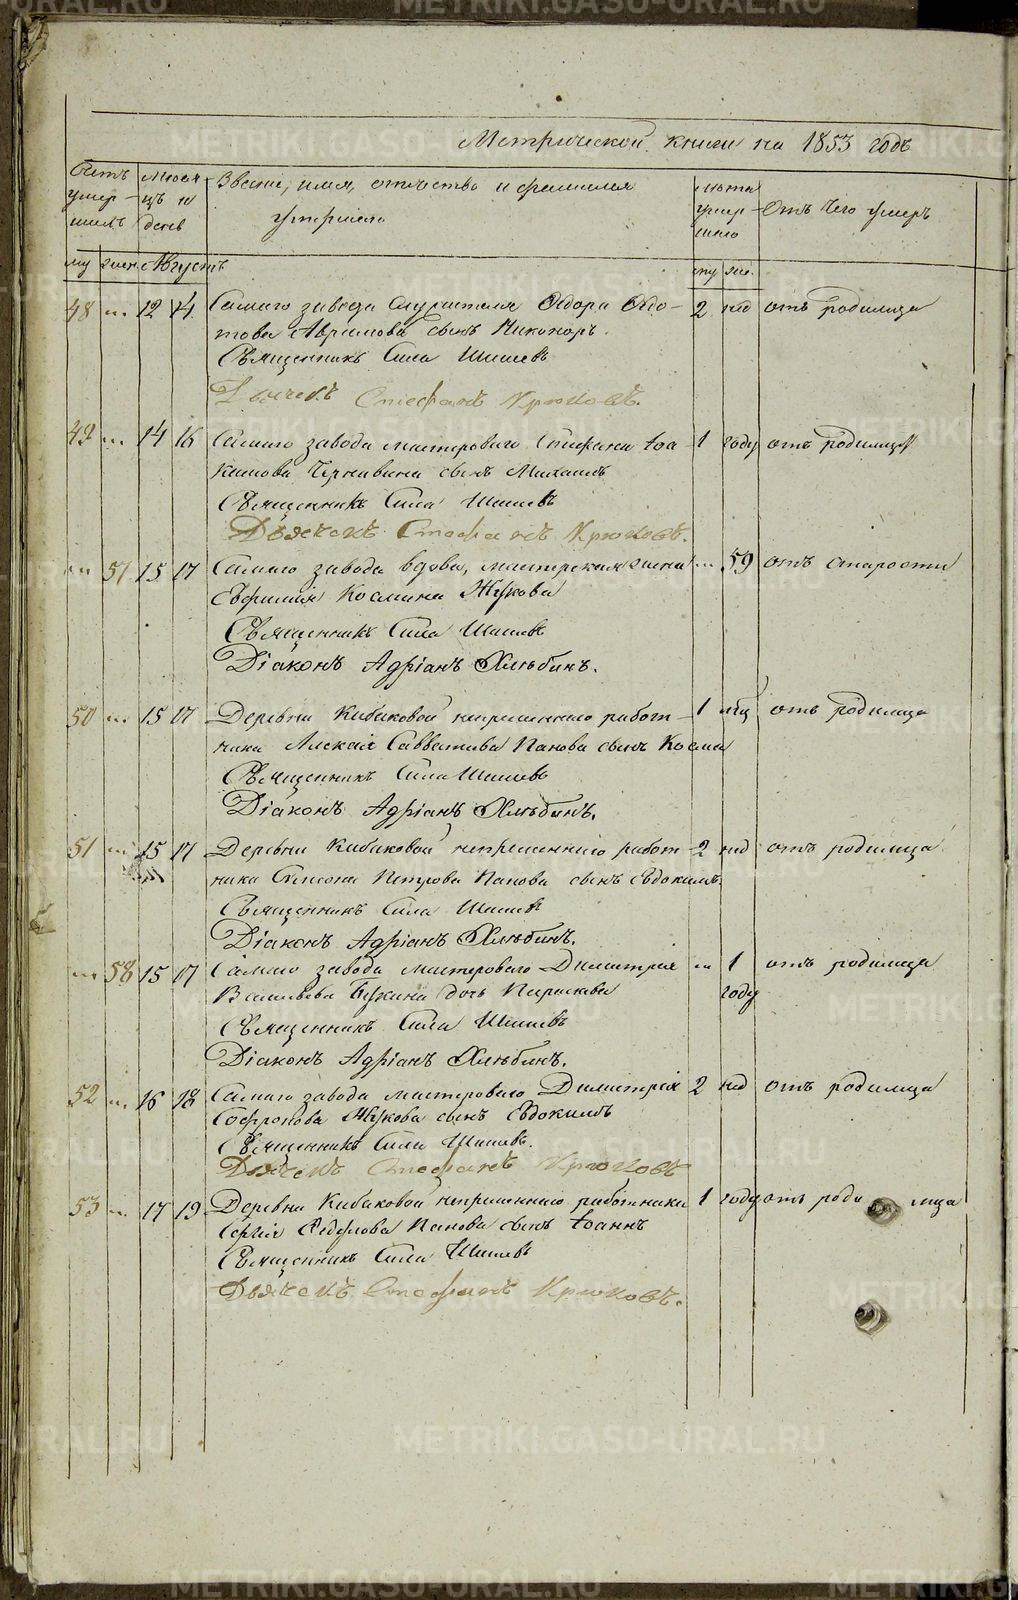 Метрической книги на 1853 годъ
Счетъ умер- шихъ
Месяцъ и день
Звание, имя, отчество и фамилия умершаго
лета умершаго
Отъ чего умеръ
му жен Августъ му же.
48 " 12 14 Самаго завода служителя Федора 2 нед отъ родимца
Авраамова сынъ Никоноръ.
Священникъ Сила Шишевъ
Дьячекъ Стефанъ Крюковъ.
49 " 14 16 Самаго завода мастероваго Стефана Іоа- 1 году отъ родимца
кимова сынъ Михаилъ
Священникъ Сила Шишевъ
Дьячекъ Стефанъ Крюковъ.
" 57 15 17 Самаго завода вдова, мастерская жена " 59 отъ старости
Евфимія Космина Жукова
Священникъ Сила Шишевъ
Діаконъ Адріанъ Хлѣбинъ.
50 " 15 17 Деревни Кибаковой непременнаго работ- 1 мѣц отъ родимца
ника Алексія Савватиева Панова сынъ Косма
Священникъ Сила Шишевъ
Діаконъ Адріанъ Хлѣбинъ.
51 " 15 17 Деревни Кибаковой непременнаго работ- 2 нед отъ родимца
ника Симеона Петрова Панова сынъ Евдокимъ.
Священникъ Сила Шишевъ
Діаконъ Адріанъ Хлѣбинъ.
" 58 15 17 Самаго завода мастероваго Димитрія " 1 отъ родимца
Васильева дочь Параскева году
Священникъ Сила Шишевъ
Діаконъ Адріанъ Хлѣбинъ.
52 " 16 18 Самаго завода мастероваго Димитрія 2 нед отъ родимца
Софронова Жукова сынъ Евдокимъ
Священникъ Сила Шишевъ.
Дьячекъ Стефанъ Крюковъ
53 " 17 19 Деревни Кибаковой непременнаго работника 1 году отъ родимца
Сергія Федорова Панова сынъ Іоаннъ
Священникъ Сила Шишевъ
Дьячекъ Стефанъ Крюковъ.
METRIKI.GASO-URAL.RU